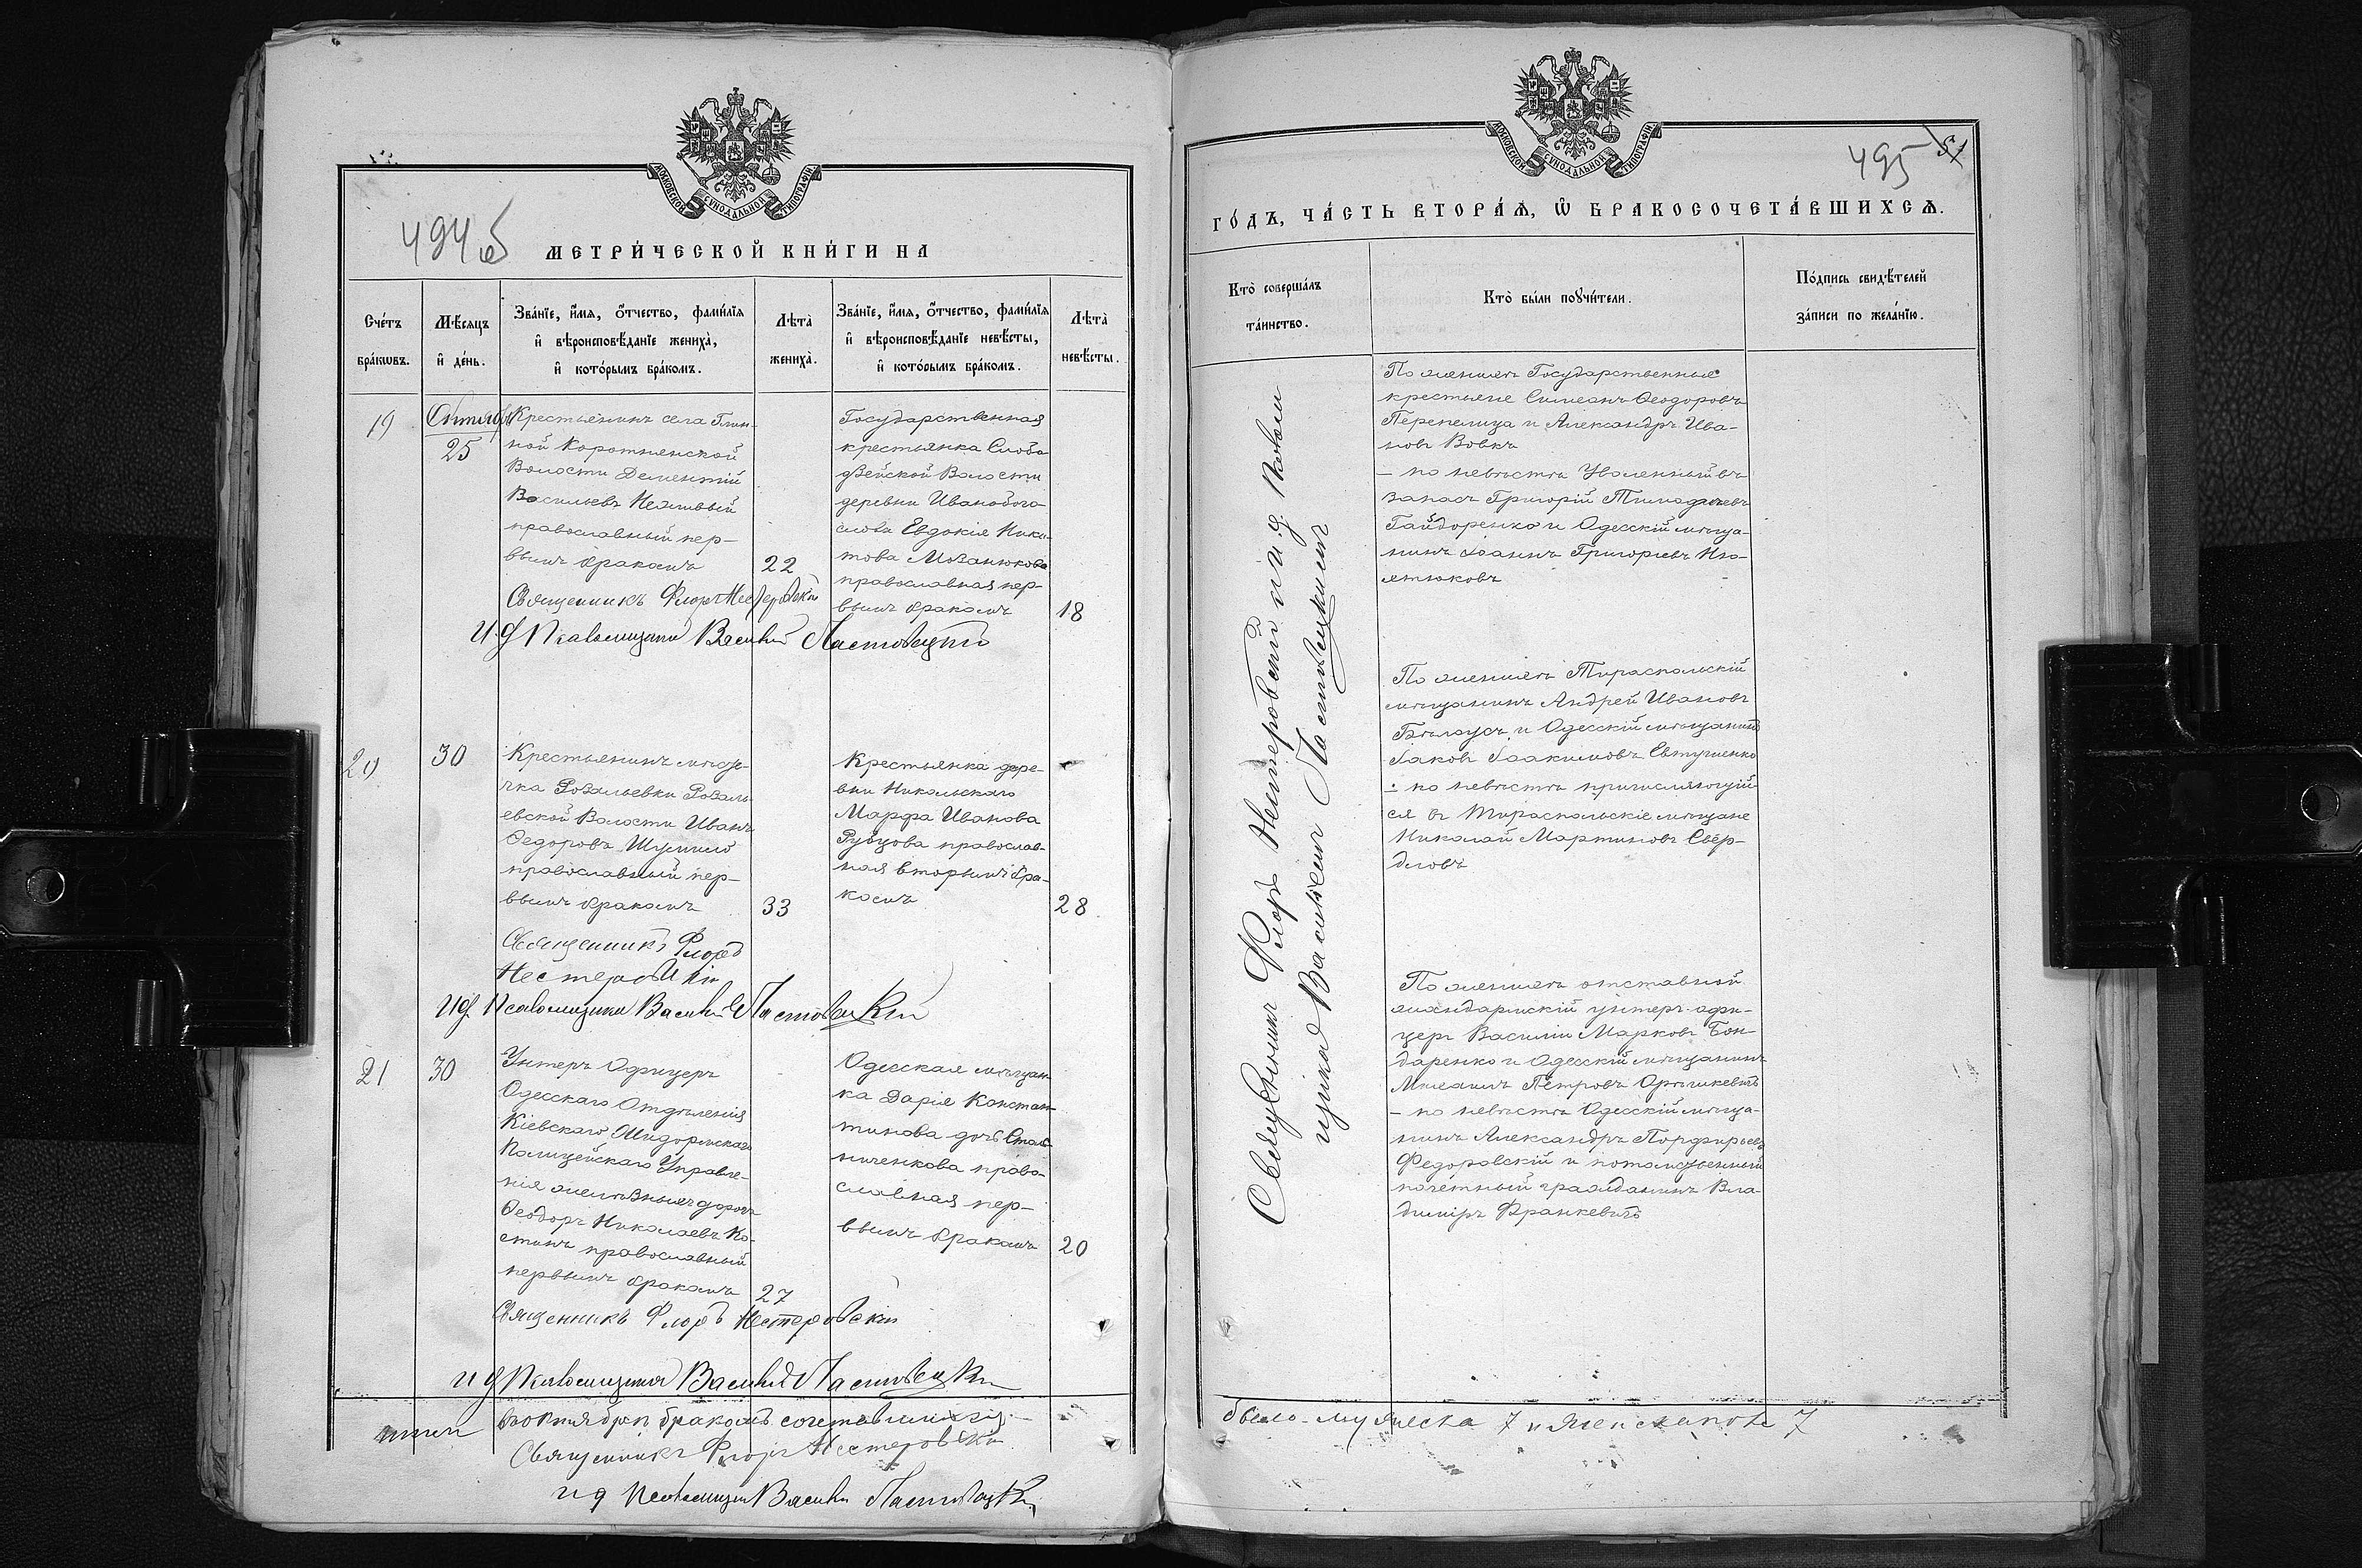 МОСКОВСКОЙ СѴНОДАЛЬНОЙ ТИПОГРАФІИ
494 об
МЕТРИ́ЧЕСКОЙ КНИ́ГИ НА
Сче́тъ
бра́кѡвъ.
Мѣ́сяцъ
и҆ де́нь.
Зва́нїе, и҆́мѧ, ѻ҆́тчество, фами́лїѧ
и҆ вѣроисповѣ́данїе жениха̀,
и҆ кото́рымъ бра́комъ.
Лѣта̀
жениха̀.
Зва́нїе, и҆́мѧ, ѻ҆́тчество, фами́лїѧ
и҆ вѣроисповѣ́данїе невѣ́сты,
и҆ кото́рымъ бра́комъ.
Лѣта̀
невѣ́сты.
19
25
Крестьянинъ села Глин-
ной Коротненской
Волости Дементій
Васильевъ
православный пер-
вымъ бракомъ
22
Государственная
крестьянка Слобо
дзейской Волости
деревни Иванобого-
слова Евдокія Ники-
това Мозанюкова
православная пер-
вымъ бракомъ
18
Священникъ Флоръ Нестеровскій
и д Псаломщика Василій Ластовецкій
20
30
Крестьянинъ мѣсте-
чка Розальевки Розаль-
евской Волости Иванъ
Ѳедоровъ
православный пер-
вымъ бракомъ
33
Крестьянка дере-
вни Никольскаго
Марфа Иванова
Рубцова православ-
ная вторымъ бра-
комъ
28
Священникъ Флоръ
Нестеровскій
и д Псаломщика Василій Ластовецкій
21
30
Унтеръ Офицеръ
Одесскаго Отдѣленія
Кіевскаго Жандармскаго
Полицейскаго Управле-
нія желѣзныхъ дорогъ
Ѳеодоръ Николаевъ Ко-
стинъ православный
первымъ бракомъ
27
Одесская мѣщан-
ка Дарія Констан-
тинова дочь
православная пер-
вымъ бракомъ
20
Священникъ Флоръ Нестеровскій
и д Псаломщика Василій Ластовецкій
въ октябрѣ бракомъ сочетавшихся
Священникъ Флоръ Нестеровскій
и д Псаломщика Василій Ластовецкій
МОСКОВСКОЙ СѴНОДАЛЬНОЙ ТИПОГРАФІИ
495
51
ГО́ДЪ, ЧА́СТЬ ВТОРА́Ѧ, Ѡ҆ БРАКОСОЧЕТА́ВШИХСѦ.
Кто̀ соверша́лъ
та́инство.
Кто̀ бы́ли порꙋчи́тели.
По́дпись свидѣ́телей
за́писи по жела́нїю.
Священникъ Флоръ Нестеровскій и и. д. псалом
щика Василій Ластовецкій
По женихѣ Государственные
крестьяне Симеонъ Ѳеодоровъ
Перепелица и Александръ Ива-
новъ Вовкъ
– по невѣстѣ Уволенный въ
запасъ Григорій
Гайдоренко и Одесскій мѣща-
нинъ Іоаннъ Григорьевъ
По женихѣ Тираспольскій
мѣщанинъ Андрей Ивановъ
Бѣлоусъ и Одесскій мѣщанинъ
Іаковъ Іоакимовъ Евтушенко
– по невѣстѣ причисляющій-
ся въ Тираспольскіе мѣщане
Николай Мартиновъ Свер-
дловъ
По женихѣ отставной
жандармскій унтеръ-офи-
церъ Василій Марковъ Бон-
даренко и Одесскій мѣщанинъ
Михаилъ Петровъ
– по невѣстѣ Одесскій мѣща-
нинъ Александръ Порфирьевъ
Федоровскій и потомственный
почетный гражданинъ Вла-
диміръ Франкевичъ
было – мужеска 7 и женскаго 7